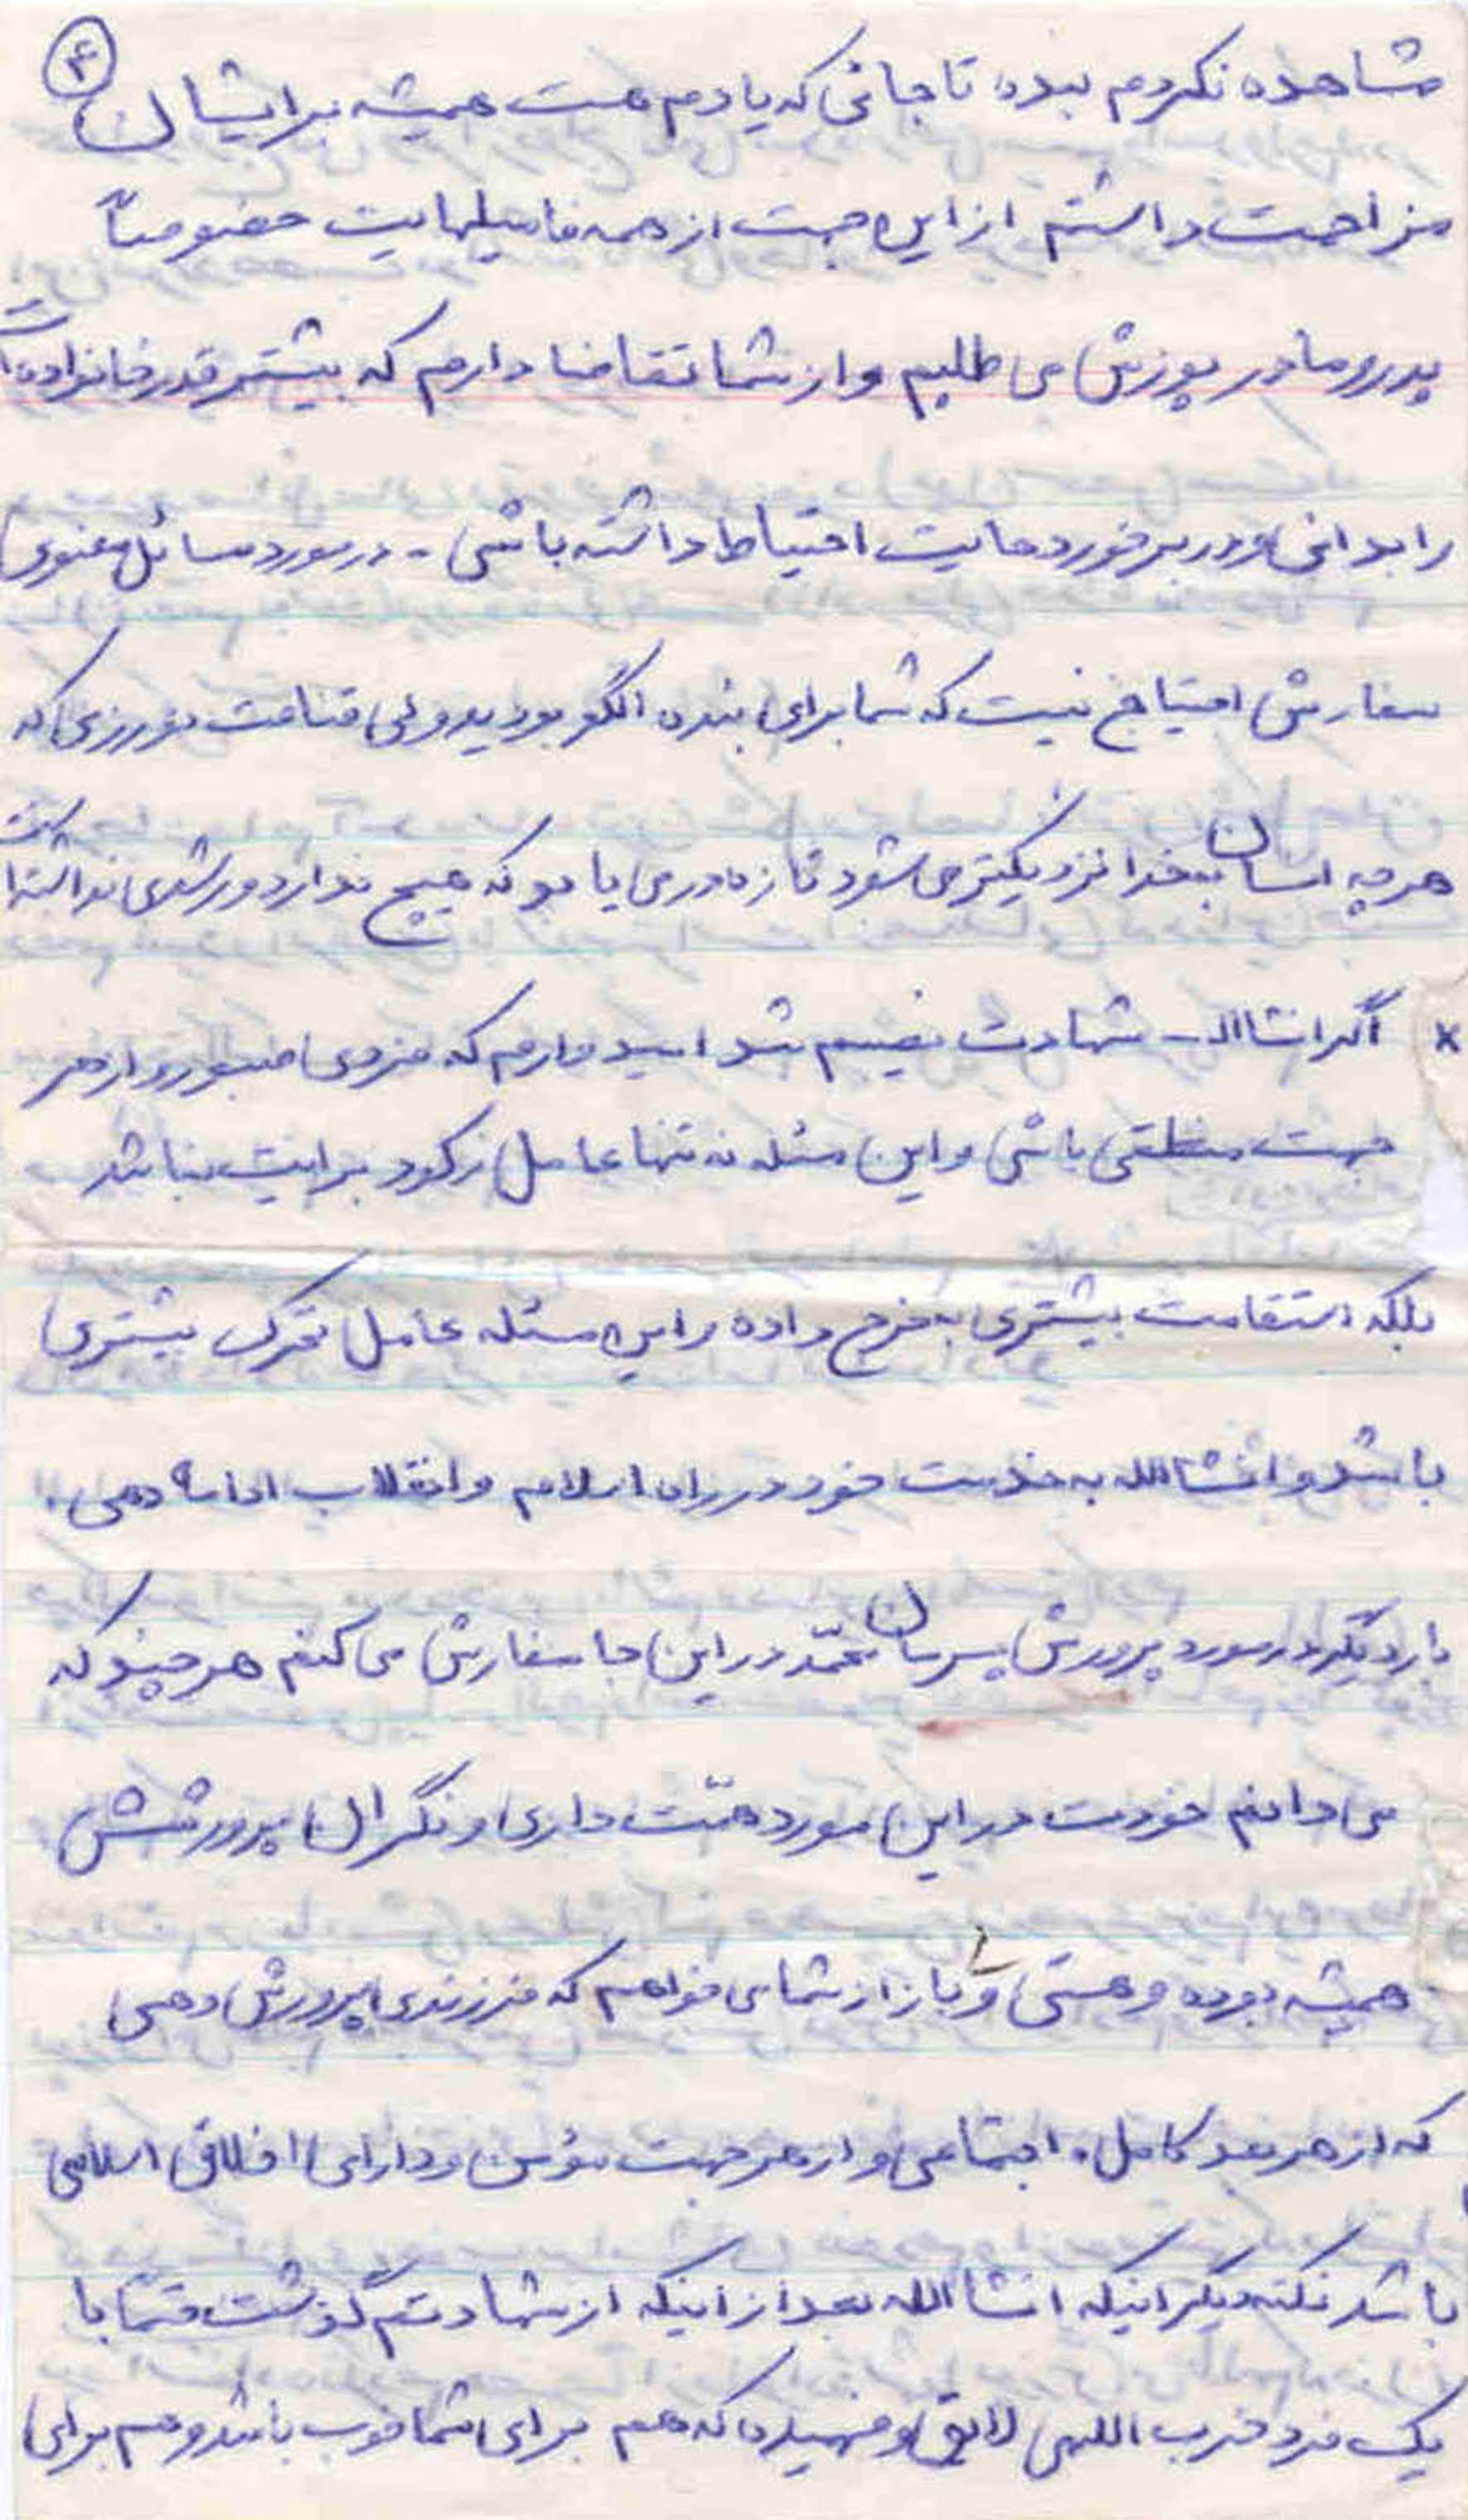 ۴
مشاهده نکردم بنده تا جائی که یادم هست همیشه برایشان
مزاحمت داشتم از این جهت از همه فامیلهایت خصوصاً
پدر و مادر پوزش می طلبم و از شما تقاضا دارم که بیشتر قدر خانواده ات
را بدانی و در برخوردهایت احتیاط داشته باشی - در مورد مسائل معنوی
سفارش احتیاج نیست که شما برای بنده الگو بودید ولی قناعت نورزی که
هر چه انسان بخدا نزدیکتر می شود تازه در می یابد که هیچ ندارد و رشدی نداشته است
× اگر انشاالله شهادت نصیبم شد امیدوارم که فردی صبور و از هر
جهت منطقی باشی و این مسئله نه تنها عامل رکود برایت نباشد
بلکه استقامت بیشتری به خرج داده و این مسئله عامل تحرک بیشتری
باشد و انشاالله به خدمت خود در راه اسلام و انقلاب ادامه دهی.
بار دیگر در مورد پرورش پسرمان محمّد در این جا سفارش می کنم هر چند که
می دانم خودت در این مورد همّت داری و نگران پرورشش
همیشه بوده و هستی و باز از شما می خواهم که فرزندی پرورش دهی
که از هر بعد کامل، اجتماعی و از هر جهت مؤمن و دارای اخلاق اسلامی
باشد نکته دیگر اینکه انشاالله بعد از اینکه از شهادتم گذشت حتماً با
یک فرد حزب اللهی لایق و فهمیده که هم برای شما خوب باشد و هم برای